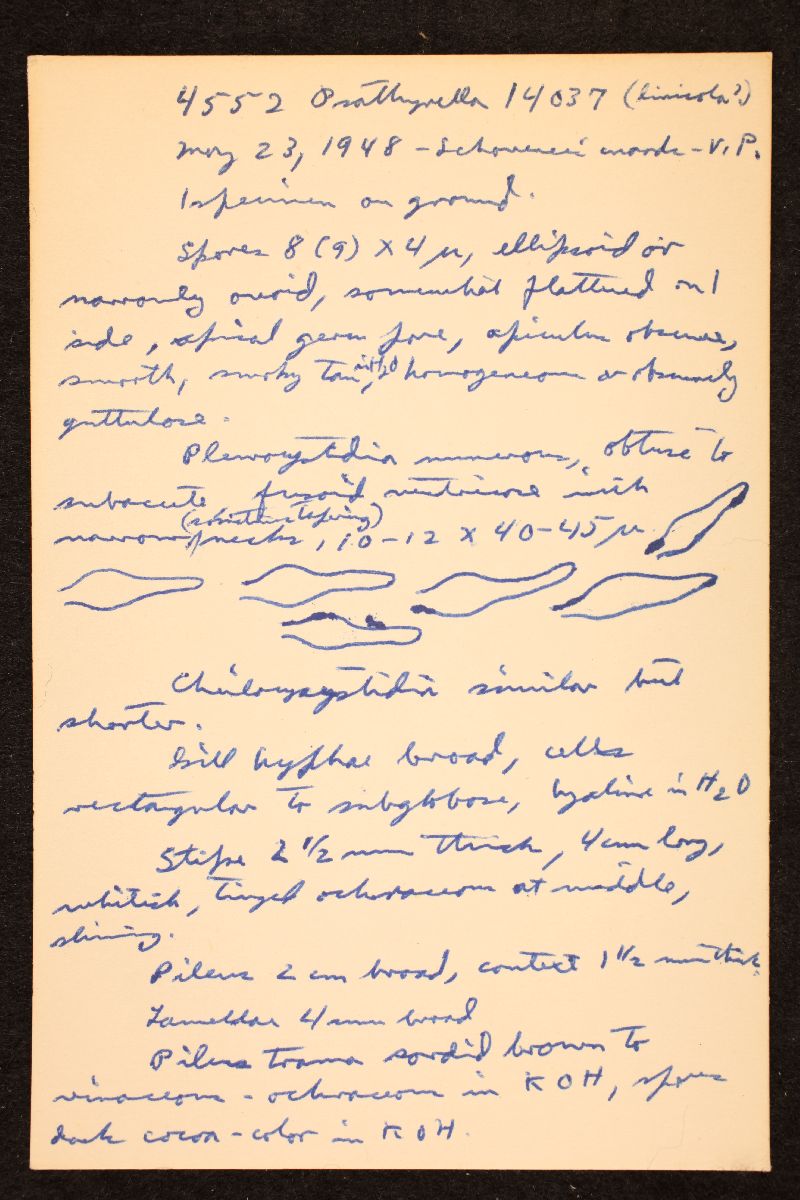 4552 Psathyrella 14037 (limicola?)
May 23, 1948 - woods - V.P.
1 specimen on ground.
Spores 8 (9) X 4 µ, ellipsoid or
narrowly ovoid, somewhat flattened on 1
side, apical germ pore, apiculus obscure,
smooth, smoky tan in H2O, homogeneous or obscurely
guttulose.
Pleurocystidia numerous, obtuse to
subacute fusoid ventricose with
(sometimes tapering)
narrow necks, 10-12 x 40-45 µ
Cheilocystidia similar but
shorter.
Gill hyphae broad, cells
rectangular to subglobose, hyaline in H2O
Stipe 2 1/2 mm thick, 4 cm long,
whitish, tinged ochraceous at middle,
shining.
Pileus 2 cm broad, context 1 1/2 mm thick.
Lamellae 4 mm broad
Pileus trama sordid brown to
vinaceous-ochraceous in KOH, spores
dark cocoa-color in KOH.